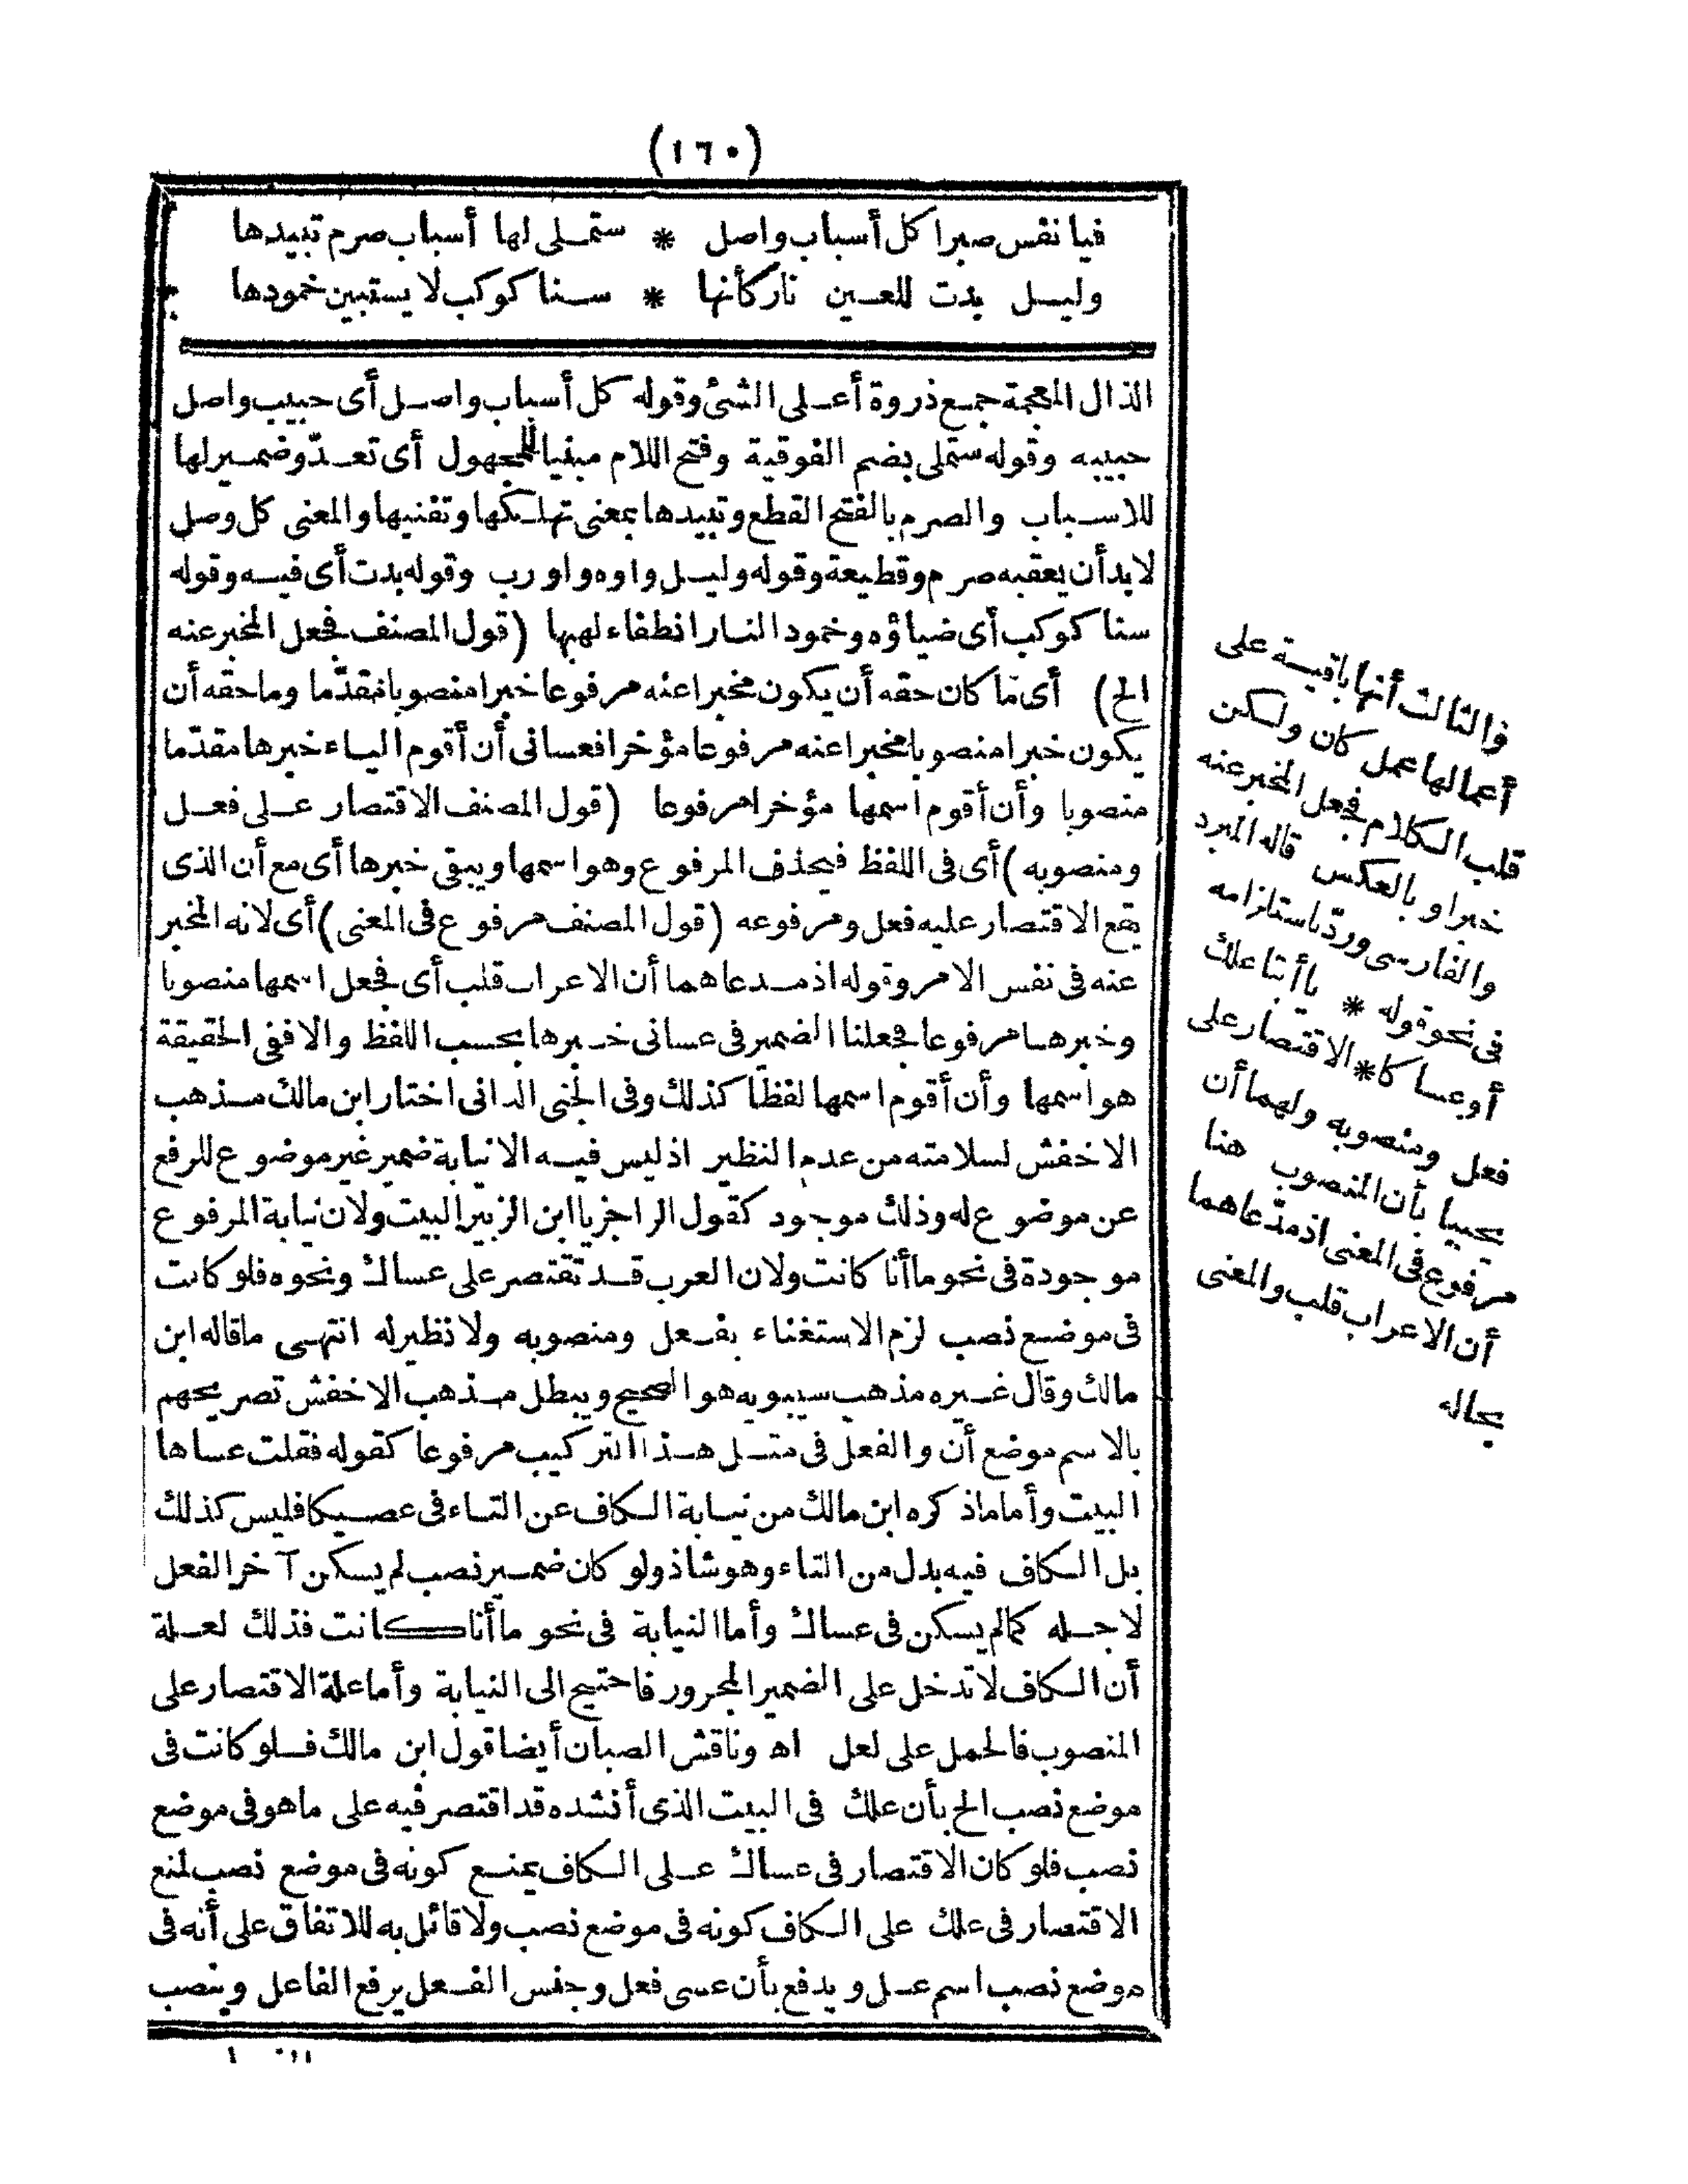 (١٦٠)
فيا نفس صبرا كل أسباب واصل * ستملى لها أسباب صرم تبيدها
وليل بدت للعين نار كأنها * سنا كوكب لا يستبين خمودها
الذال المعجمة جمع ذروة أعلى الشئ وقوله كل أسباب واصل أى حبيب واصل
حبيبه وقوله ستملى بضم الفوقية وفتح اللام مبنيا للمجهول أى تعدّ وضمير لها
للاسباب والصرم بالفتح القطع وتبيدها بمعنى تهلكها وتفنيها والمعنى كل وصل
لابد أن يعقبه صرم وقطيعة وقوله وليل واوه واو رب وقوله بدت أى فيه وقوله
سنا كوكب أى ضياؤه وخمود النار انطفاء لهبها (قول المصنف فجعل المخبر عنه
الخ) أى ما كان حقه أن يكون مخبرا عنه مرفوعا خبرا منصوبا مقدّما وما حقه أن
يكون خبرا منصوبا مخبرا عنه مرفوعا مؤخرا فعسانى أن أقوم الياء خبرها مقدّما
منصوبا وأن أقوم اسمها مؤخرا مرفوعا (قول المصنف الاقتصار على فعل
ومنصوبه) أى فى اللفظ فيحذف المرفوع وهو اسمها ويبقى خبرها أى مع أن الذى
يقع الاقتصار عليه فعل ومرفوعه (قول المصنف مرفوع فى المعنى) أى لانه المخبر
عنه فى نفس الامر وقوله اذ مدعاهما أن الاعراب قلب أى فجعل اسمها منصوبا
وخبرها مرفوعا فجعلنا الضمير فى عسانى خبرها بحسب اللفظ والا ففى الحقيقة
هو اسمها وأن أقوم اسمها لفظا كذلك وفى الجنى الدانى اختار ابن مالك مذهب
الاخفش لسلامته من عدم النظير اذ ليس فيه الا نيابة ضمير غير موضوع للرفع
عن موضوع له وذلك موجود كقول الراجز يا ابن الزبير البيت ولان نيابة المرفوع
موجودة فى نحو ما أنا كانت ولان العرب قد تقتصر على عساك ونحوه فلو كانت
فى موضع نصب لزم الاستغناء بفعل ومنصوبه ولا نظير له انتهى ما قاله ابن
مالك وقال غيره مذهب سيبويه هو الصحيح ويبطل مذهب الاخفش تصريحهم
بالاسم موضع أن والفعل فى مثل هذا التركيب مرفوعا كقوله فقلت عساها
البيت وأما ما ذكره ابن مالك من نيابة الكاف عن التاء فى عصيكا فليس كذلك
بل الكاف فيه بدل من التاء وهو شاذ ولو كان ضمير نصب لم يسكن آخر الفعل
لاجله كما لم يسكن فى عساك وأما النيابة فى نحو ما أنا كانت فذلك لعلة
أن الكاف لا تدخل على الضمير المجرور فاحتيج الى النيابة وأما علة الاقتصار على
المنصوب فالحمل على لعل اه وناقش الصبان أيضا قول ابن مالك فلو كانت فى
موضع نصب الخ بأن علك فى البيت الذى أنشده قد اقتصر فيه على ما هو فى موضع
نصب فلو كان الاقتصار فى عساك على الكاف يمنع كونه فى موضع نصب لمنع
الاقتصار فى علك على الكاف كونه فى موضع نصب ولا قائل به للاتفاق على أنه فى
موضع نصب اسم عل ويدفع بأن عسى فعل وجنس الفعل يرفع الفاعل وينصب
والثالث أنها باقية على
أعمالها عمل كان ولكن
قلب الكلام فجعل المخبر عنه
خبرا وبالعكس قاله المبرد
والفارسى وردّ باستلزامه
فى نحو قوله * يا أبتا علك
أو عساكا * الاقتصار على
فعل ومنصوبه ولهما أن
يجيبا بأن المنصوب هنا
مرفوع فى المعنى اذ مدّعاهما
أن الاعراب قلب والمعنى
بحاله